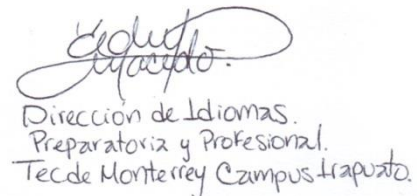 Macedo.
Dirección de Idiomas.
Preparatoria y Profesional.
Tec de Monterrey Campus Irapuato.